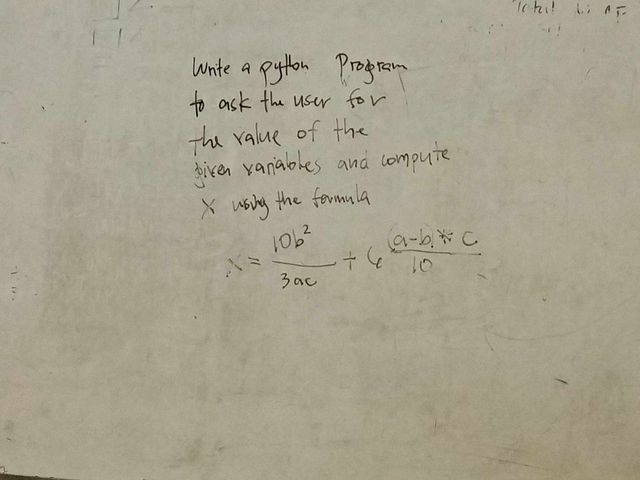 Write a python Program
to ask the user for
the value of the
given variables and compute
X using the formula
x = 10b²/3ac + 6 (a-b)* c/10